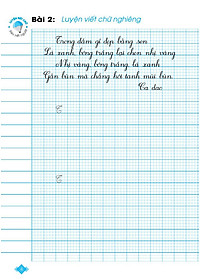 Bài 2: Luyện viết chữ nghiêng
Trong đầm gì đẹp bằng sen
Lá xanh, bông trắng lại chen nhị vàng
Nhị vàng, bông trắng, lá xanh
Gần bùn mà chẳng hôi tanh mùi bùn.
Ca dao
T
T